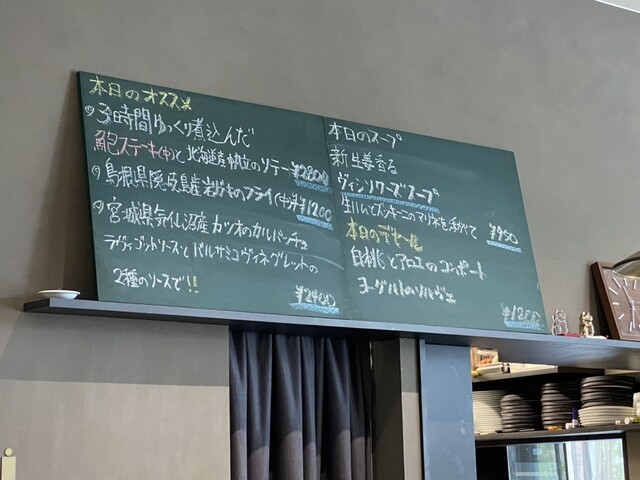 本日のオススメ
3時間ゆっくり煮込んだ
鮑ステーキ(中)と北海道産帆立のソテー ¥2800
島根県隠岐島産岩ガキのフライ(中) ¥1200
宮城県気仙沼産カツオのカルパッチョ
ラヴィゴットソースとバルサミコヴィネグレットの
2種のソースで!! ¥2400
本日のスープ
新生姜香る
ヴィシソワーズスープ
生ハムとズッキーニのマリネを浮べて ¥950
本日のデセール
白桃とアロエのコンポート
ヨーグルトのソルヴェ
¥1200